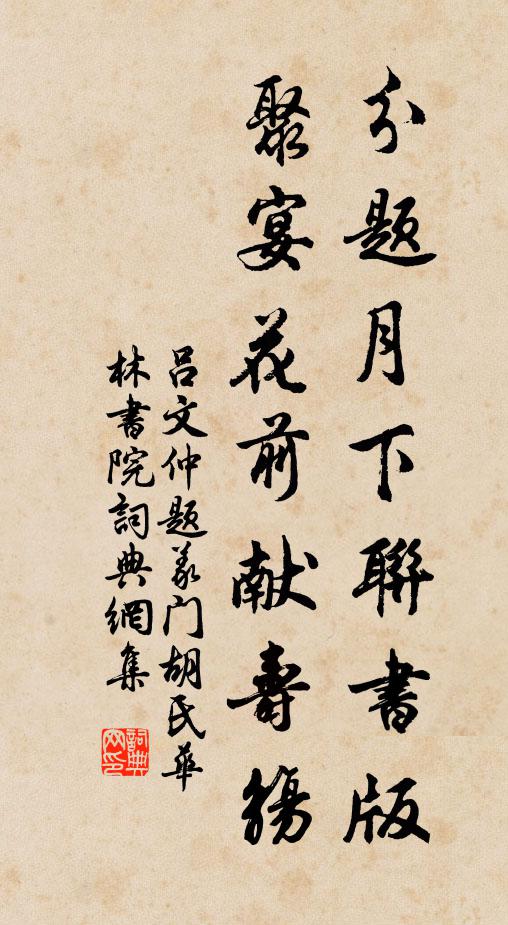 分题月下聯書版
聚宴花前献壽觴
吕文仲题义门胡氏華
林書院詞典網集
詞典网印